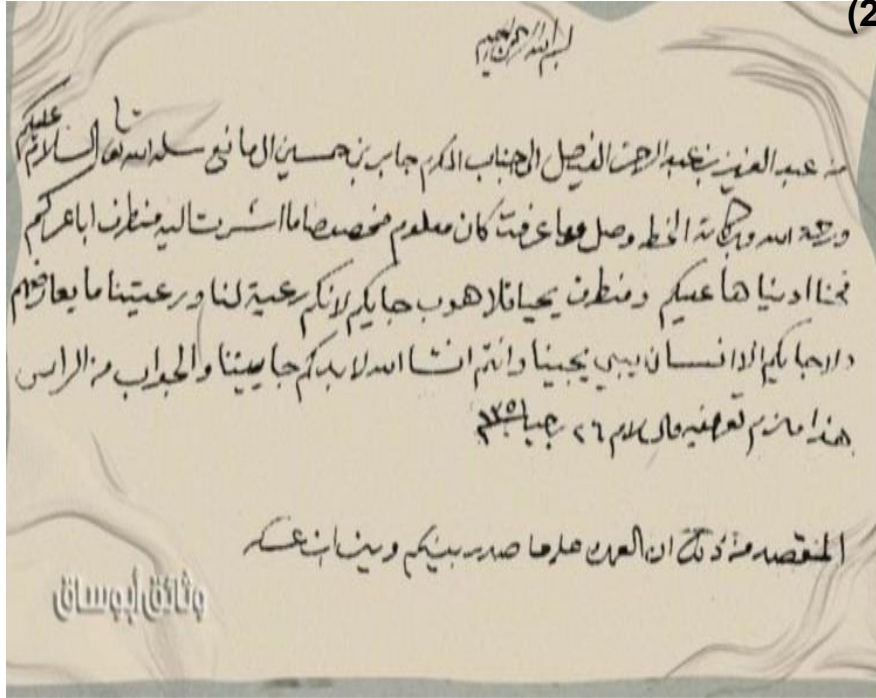 (2
بسم الله الرحمن الرحيم
من عبد العزيز بن عبد الرحمن الفيصل الى جناب المكرم جابر بن حسين ال مانع سلمه الله تعا السلام عليكم
ورحمة الله وبركاته الخط وصل وما عرفت كان معلوم مخصصا ما اشرت اليه منطرف اباعركم
نحنا ادينا ها عليكم ومنطرف لاهوب جايكم لانكم رعية لنا ورعيتنا ما يعارضهم
ولا جايكم الا انسان يبي يجينا وانتم انشا الله لابدكم جايينا والجواب من الراس
هذا ما لزم تعريفه والسلام ٢٦ رجب ١٣٥١
المقصد من ذلك ان العمدة على ما صدر بينكم وبين ابن عسكر
وثائق أبوساق